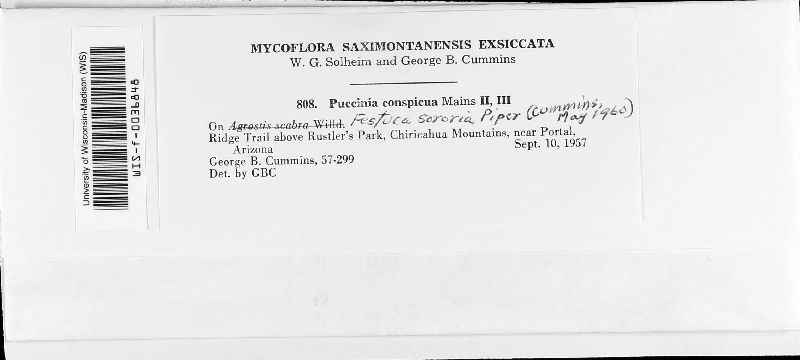 University of Wisconsin-Madison (WIS)
WIS-f-0036848
MYCOFLORA SAXIMONTANENSIS EXSICCATA
W. G. Solheim and George B. Cummins
808. Puccinia conspicua Mains II, III
On Agrostis scabra Willd. Festuca sororia Piper (Cummins, May 1960)
Ridge Trail above Rustler's Park, Chiricahua Mountains, near Portal,
Arizona Sept. 10, 1957
George B. Cummins, 57-299
Det. by GBC